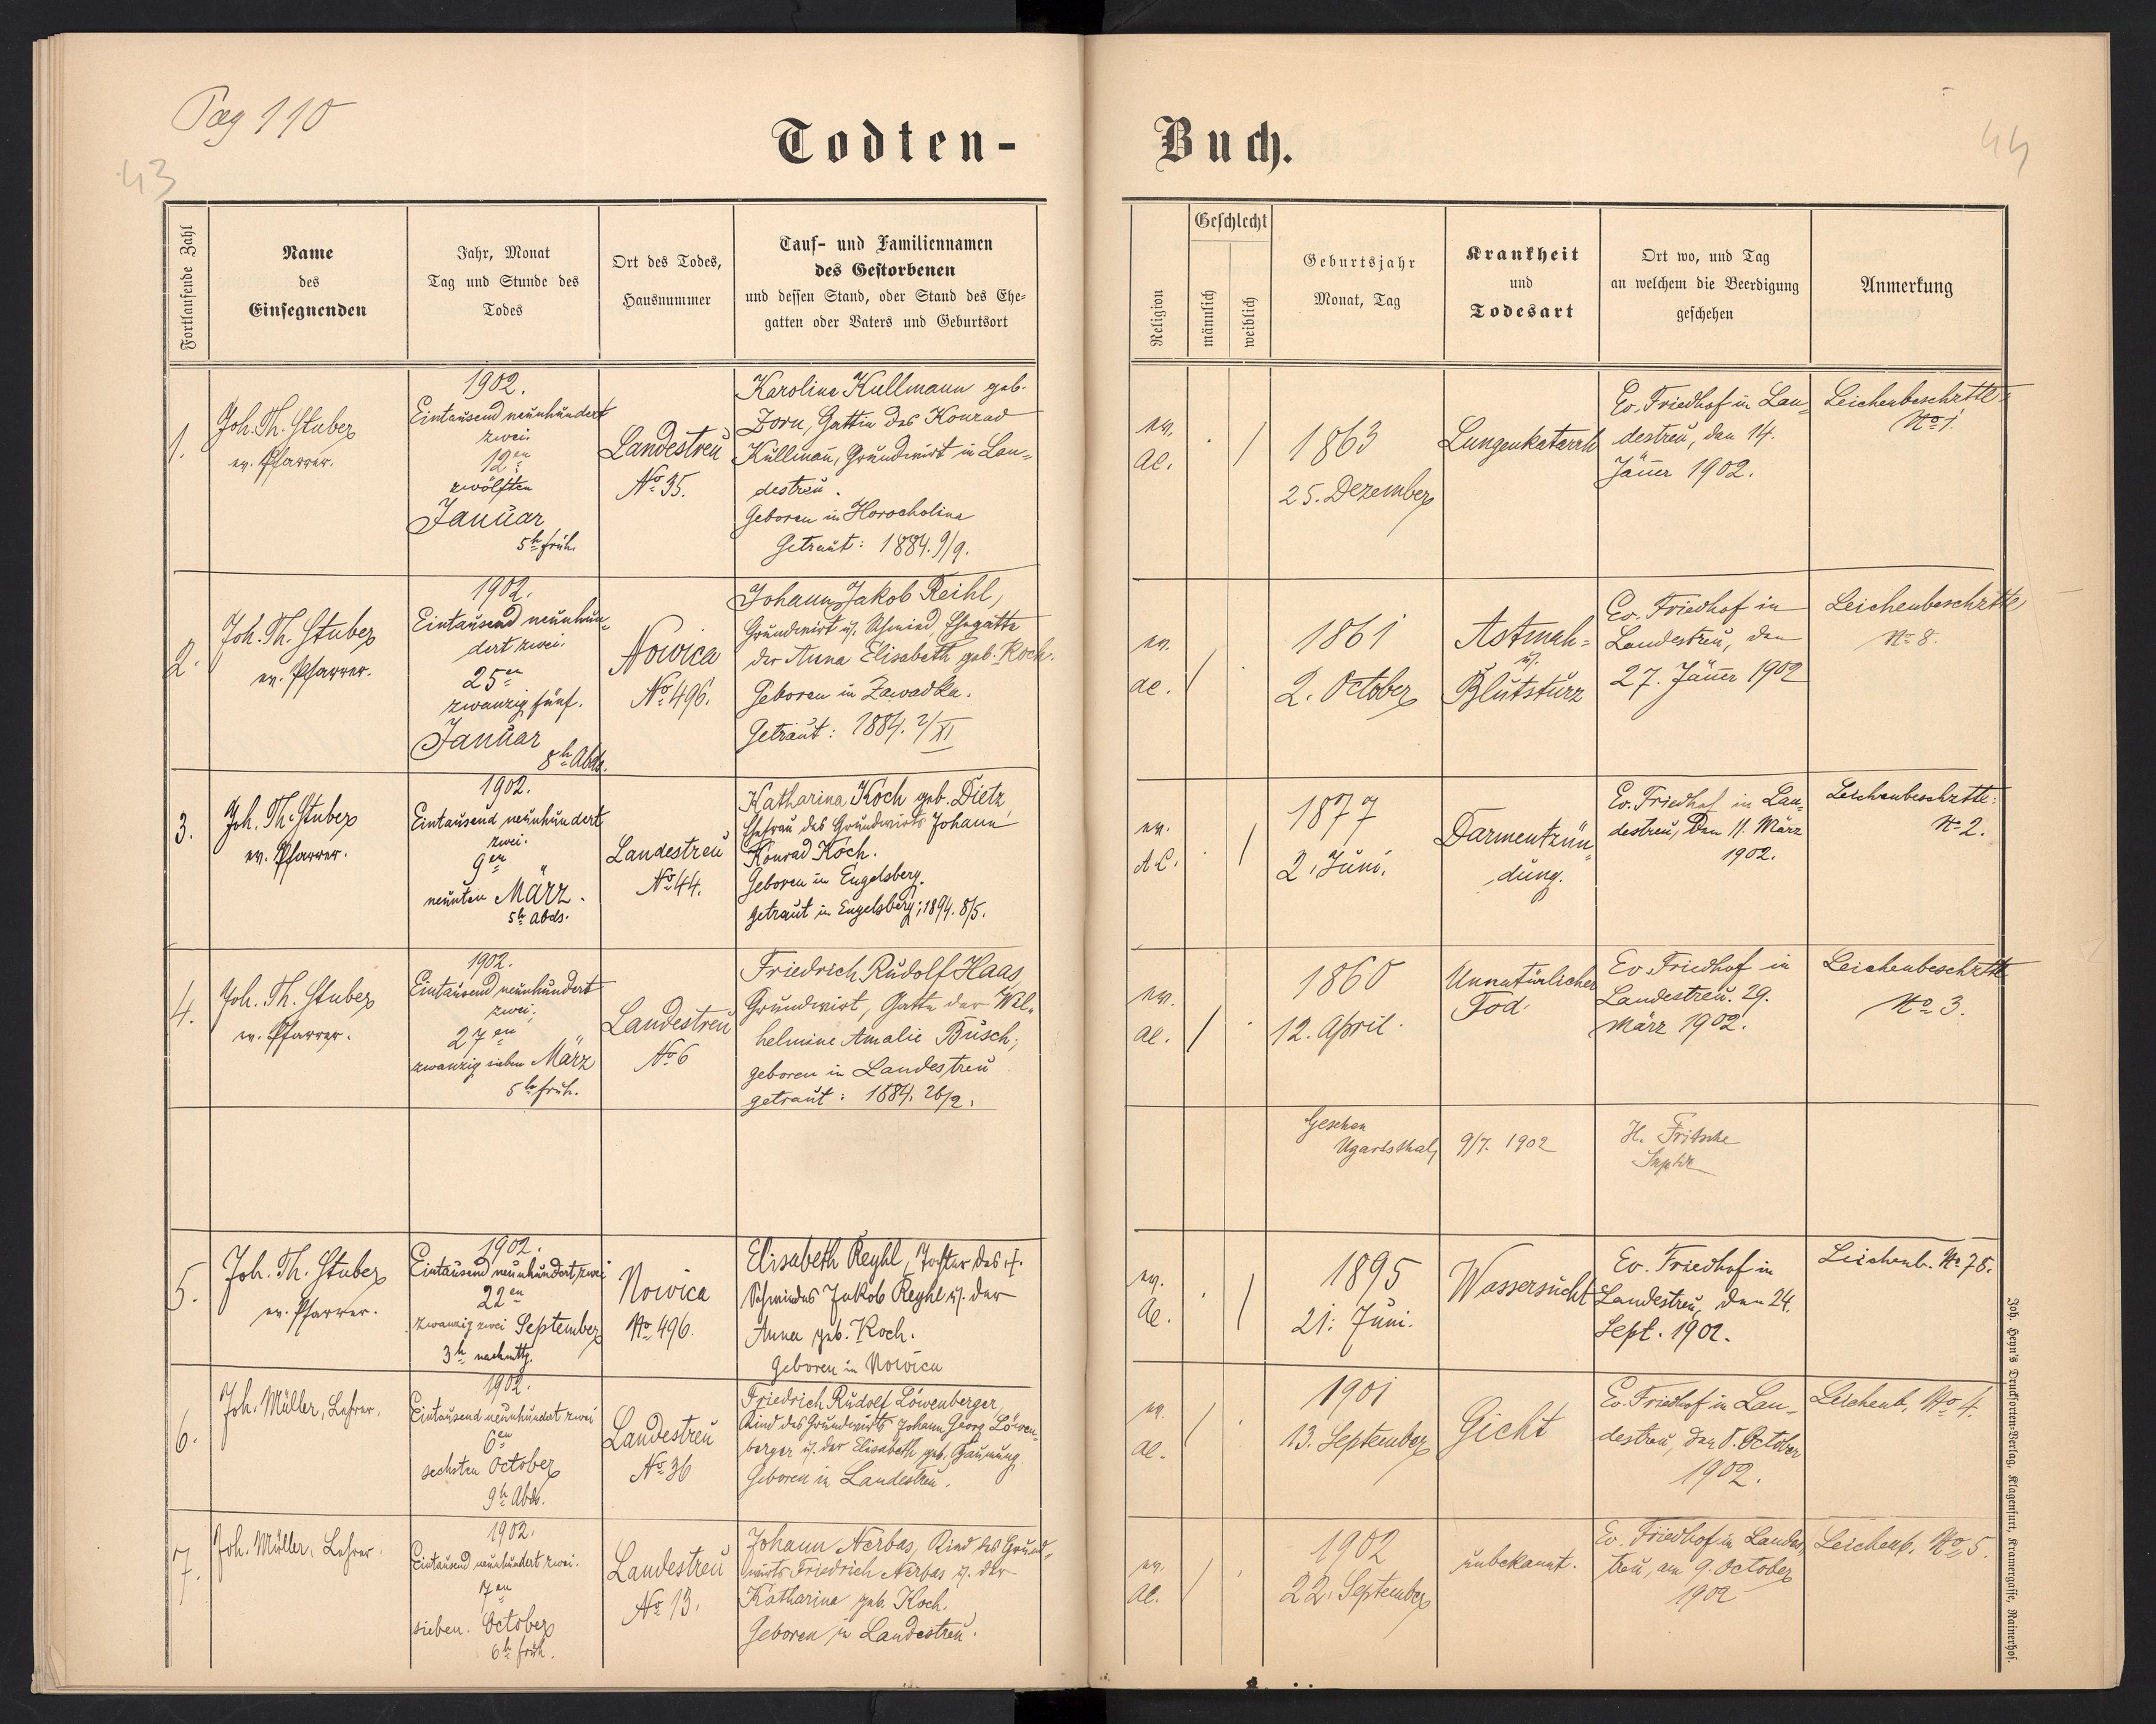 Pag 110
43
44
Todten-
Buch.
Fortlaufende Zahl
Name
des
Einsegnenden
Jahr, Monat
Tag und Stunde des
Todes
Ort des Todes,
Hausnummer
Tauf- und Familiennamen
des Gestorbenen
und dessen Stand, oder Stand des Ehe-
gatten oder Vaters und Geburtsort
Religion
Geschlecht
männlich
weiblich
Geburtsjahr
Monat, Tag
Krankheit
und
Todesart
Ort wo, und Tag
an welchem die Beerdigung
geschehen
Anmerkung
1.
Joh. Th. Stuber
ev. Pfarrer.
1902.
Eintausend neunhundert
zwei.
12en
zwölften
Januar
5h früh.
Landestreu
No 35.
Karolina Kullmann geb.
Zorn, Gattin des Konrad
Kullman̄, Grundwirt in Lan=
destreu.
Geboren in Horocholina
Getraut: 1884. 9/9.
ev.
AC.
. /
1863
25. Dezember
Lungenkatarrh
Ev. Friedhof in Lan=
destreu, den 14.
Jän̄er 1902.
Leichenbeschrtte
No 1.
2.
Joh. Th. Stuber
ev. Pfarrer.
1902.
Eintausend neunhun=
dert zwei.
25en
zwanzig fünf.
Januar
8h Abds.
Nowica
No 496.
Johann Jakob Reihl,
Grundwirt u. Schmied, Ehegatte
der Anna Elisabeth geb. Koch.
Geboren in Zawadka.
Getraut: 1884. 2/XI
ev.
AC.
/ .
1861
2. October
Astmah=
u.
Blutsturz
Ev. Friedhof in
Landestreu, den
27. Jän̄er 1902
Leichenbeschrtte
No 8.
3.
Joh. Th. Stuber
ev. Pfarrer.
1902.
Eintausend neunhundert
zwei.
9en
neunten März.
5h Abds.
Landestreu
No 44.
Katharina Koch geb. Dietz,
Ehefrau des Grundwirts Johann
Konrad Koch.
Geboren in Engelsberg.
getraut in Engelsberg; 1894. 8/5.
ev.
A.C.
. /
1877
2. Juni.
Darmentzün=
dung.
Ev. Friedhof in Lan=
destreu, den 11. März
1902.
Leichenbeschrtte:
No 2.
4.
Joh. Th. Stuber
ev. Pfarrer.
1902.
Eintausend neunhundert
zwei;
27en
zwanzig sieben März
5h früh.
Landestreu
No 6
Friedrich Rudolf Haas,
Grundwirt, Gatte der Wil=
helmine Amalie Busch;
geboren in Landestreu
getraut: 1884. 26/2.
ev.
AC.
/ .
1860
12. April.
Unnatürlicher
Tod.
Ev. Friedhof in
Landestreu. 29.
März 1902.
Leichenbeschrtte
No 3.
Gesehen
Ugartsthal, 9/7. 1902
H. Fritsche
5.
Joh. Th. Stuber
ev. Pfarrer.
1902.
Eintausend neunhundert zwei
22en
zwanzig zwei September
3h nachmttg.
Nowica
No 496.
Elisabeth Reyhl, Tochter des †
Schmiedes Jakob Reyhl u. der
Anna geb. Koch.
Geboren in Nowica
ev.
AC.
. /
1895
21. Juni.
Wassersucht
Ev. Friedhof in
Landestreu, den 24.
Sept. 1902.
Leichenb. No 78.
6.
Joh. Müller, Lehrer.
1902.
Eintausend neunhundert zwei
6en
sechsten October
9h Abds.
Landestreu
No 36
Friedrich Rudolf Löwenberger,
Kind des Grundwirts Johann Georg Löwen=
berger u. der Elisabeth geb.
Geboren in Landestreu.
ev.
AC.
/ .
1901
13. September
Gicht
Ev. Friedhof in Lan=
destreu, den 8. October
1902.
Leichenb. No 4.
7.
Joh. Müller, Lehrer.
1902.
Eintausend neunhundert zwei.
7en
sieben. October
6h früh.
Landestreu
No 13.
Johann Nerbas, Kind des Grund=
wirts Friedrich Nerbas u. der
Katharina geb. Koch.
Geboren in Landestreu.
ev.
AC.
/ .
1902
22. September
unbekannt.
Ev. Friedhof in Landes=
treu, am 9. October
1902
Leichenb. No 5.
Joh. Heyn's Drucksorten-Verlag, Klagenfurt, Kramergasse, Rainerhof.